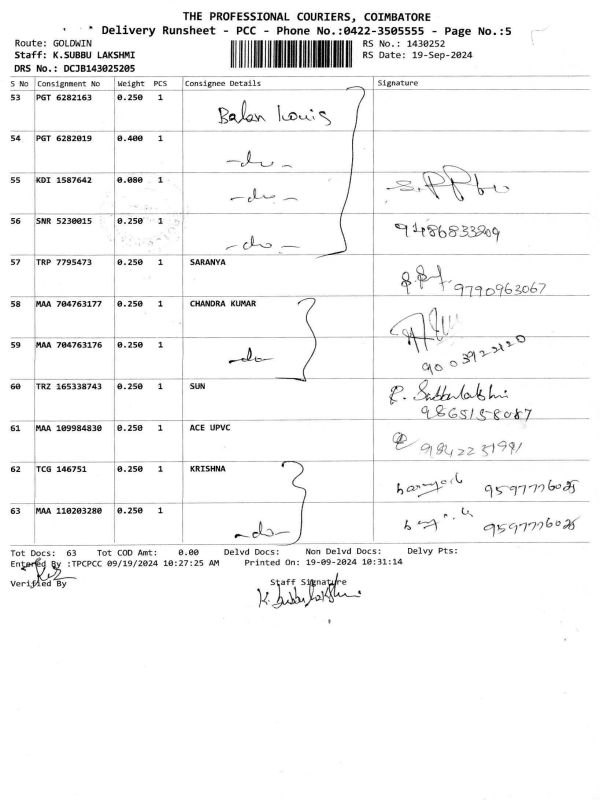 THE PROFESSIONAL COURIERS, COIMBATORE
Delivery Runsheet - PCC - Phone No.:0422-3505555 - Page No.:5
Route: GOLDWIN
RS No.: 1430252
Staff: K.SUBBU LAKSHMI
RS Date: 19-Sep-2024
DRS No.: DCJB143025205
S No Consignment No Weight PCS Consignee Details Signature
53 PGT 6282163 0.250 1 Balan Louis
54 PGT 6282019 0.400 1 -do-
55 KDI 1587642 0.080 1 -do-
56 SNR 5230015 0.250 1 -do- 9486833209
57 TRP 7795473 0.250 1 SARANYA 9790963067
58 MAA 704763177 0.250 1 CHANDRA KUMAR
59 MAA 704763176 0.250 1 -do- 9003922120
60 TRZ 165338743 0.250 1 SUN
61 MAA 109984830 0.250 1 ACE UPVC
62 TCG 146751 0.250 1 KRISHNA
63 MAA 110203280 0.250 1 -do-
Tot Docs: 63 Tot COD Amt: 0.00 Delvd Docs: Non Delvd Docs: Delvy Pts:
Entered By :TPCPCC 09/19/2024 10:27:25 AM Printed On: 19-09-2024 10:31:14
Verified By
Staff Signature
K. Subbulakshmi